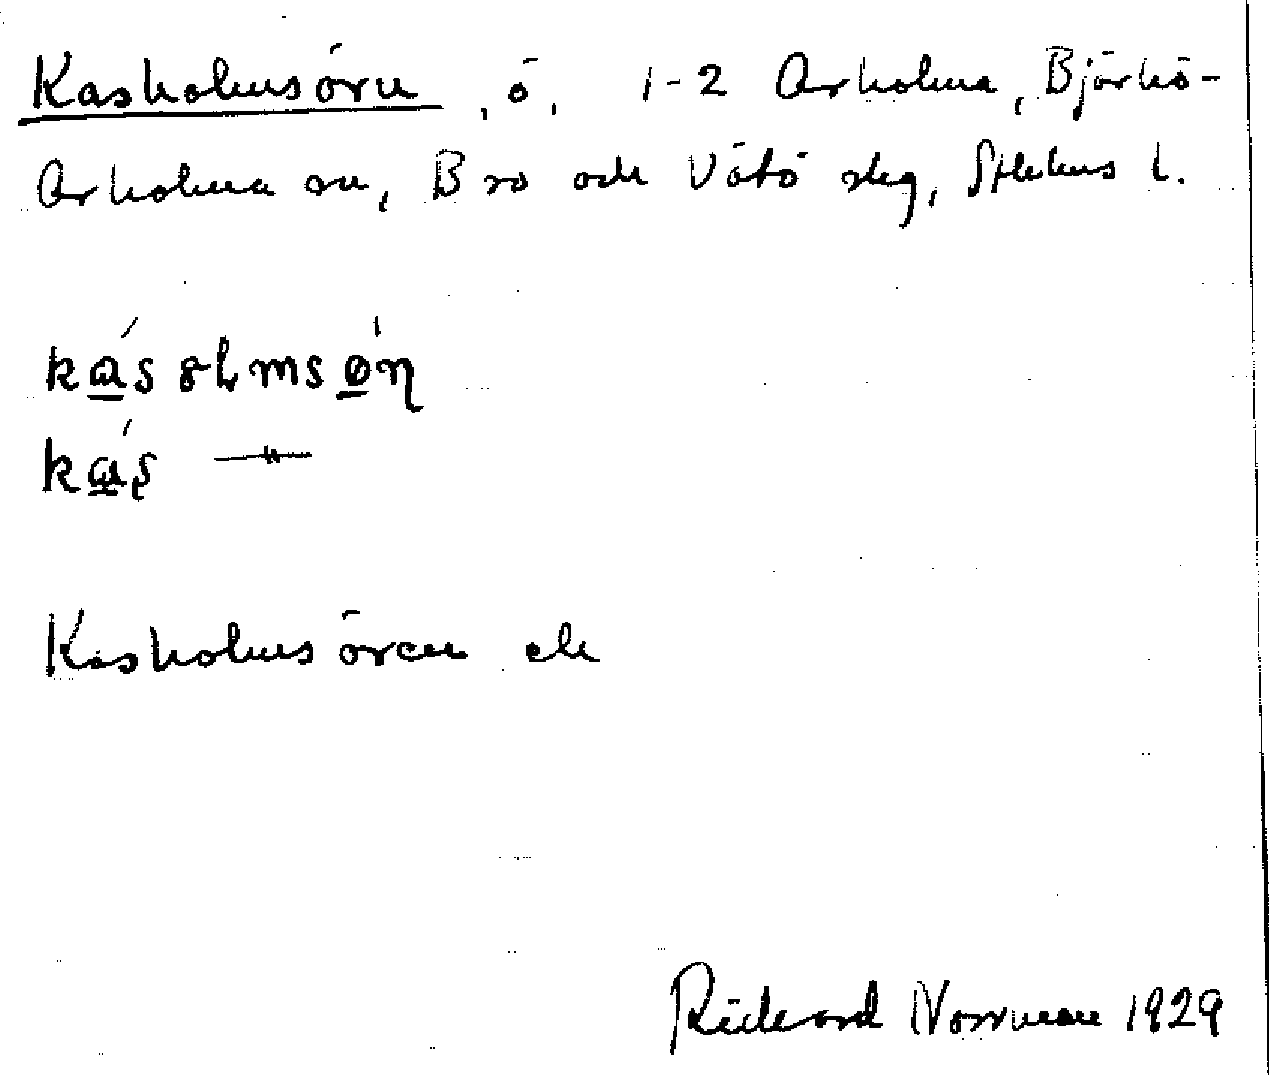 Kasholmsörn, ö, 1-2 Arholma, Björkö-
Arholma sn, Bro och Vätö slg, Sthlms l.
kas olmsøn
kas —"—
Kasholmsören ek
Rickard Norrman 1929